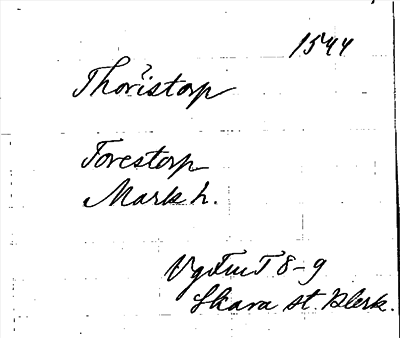 1544
Thoristorp
Forestorp
Mark h.
VgFmT 8-9
Skara st. Klerk.